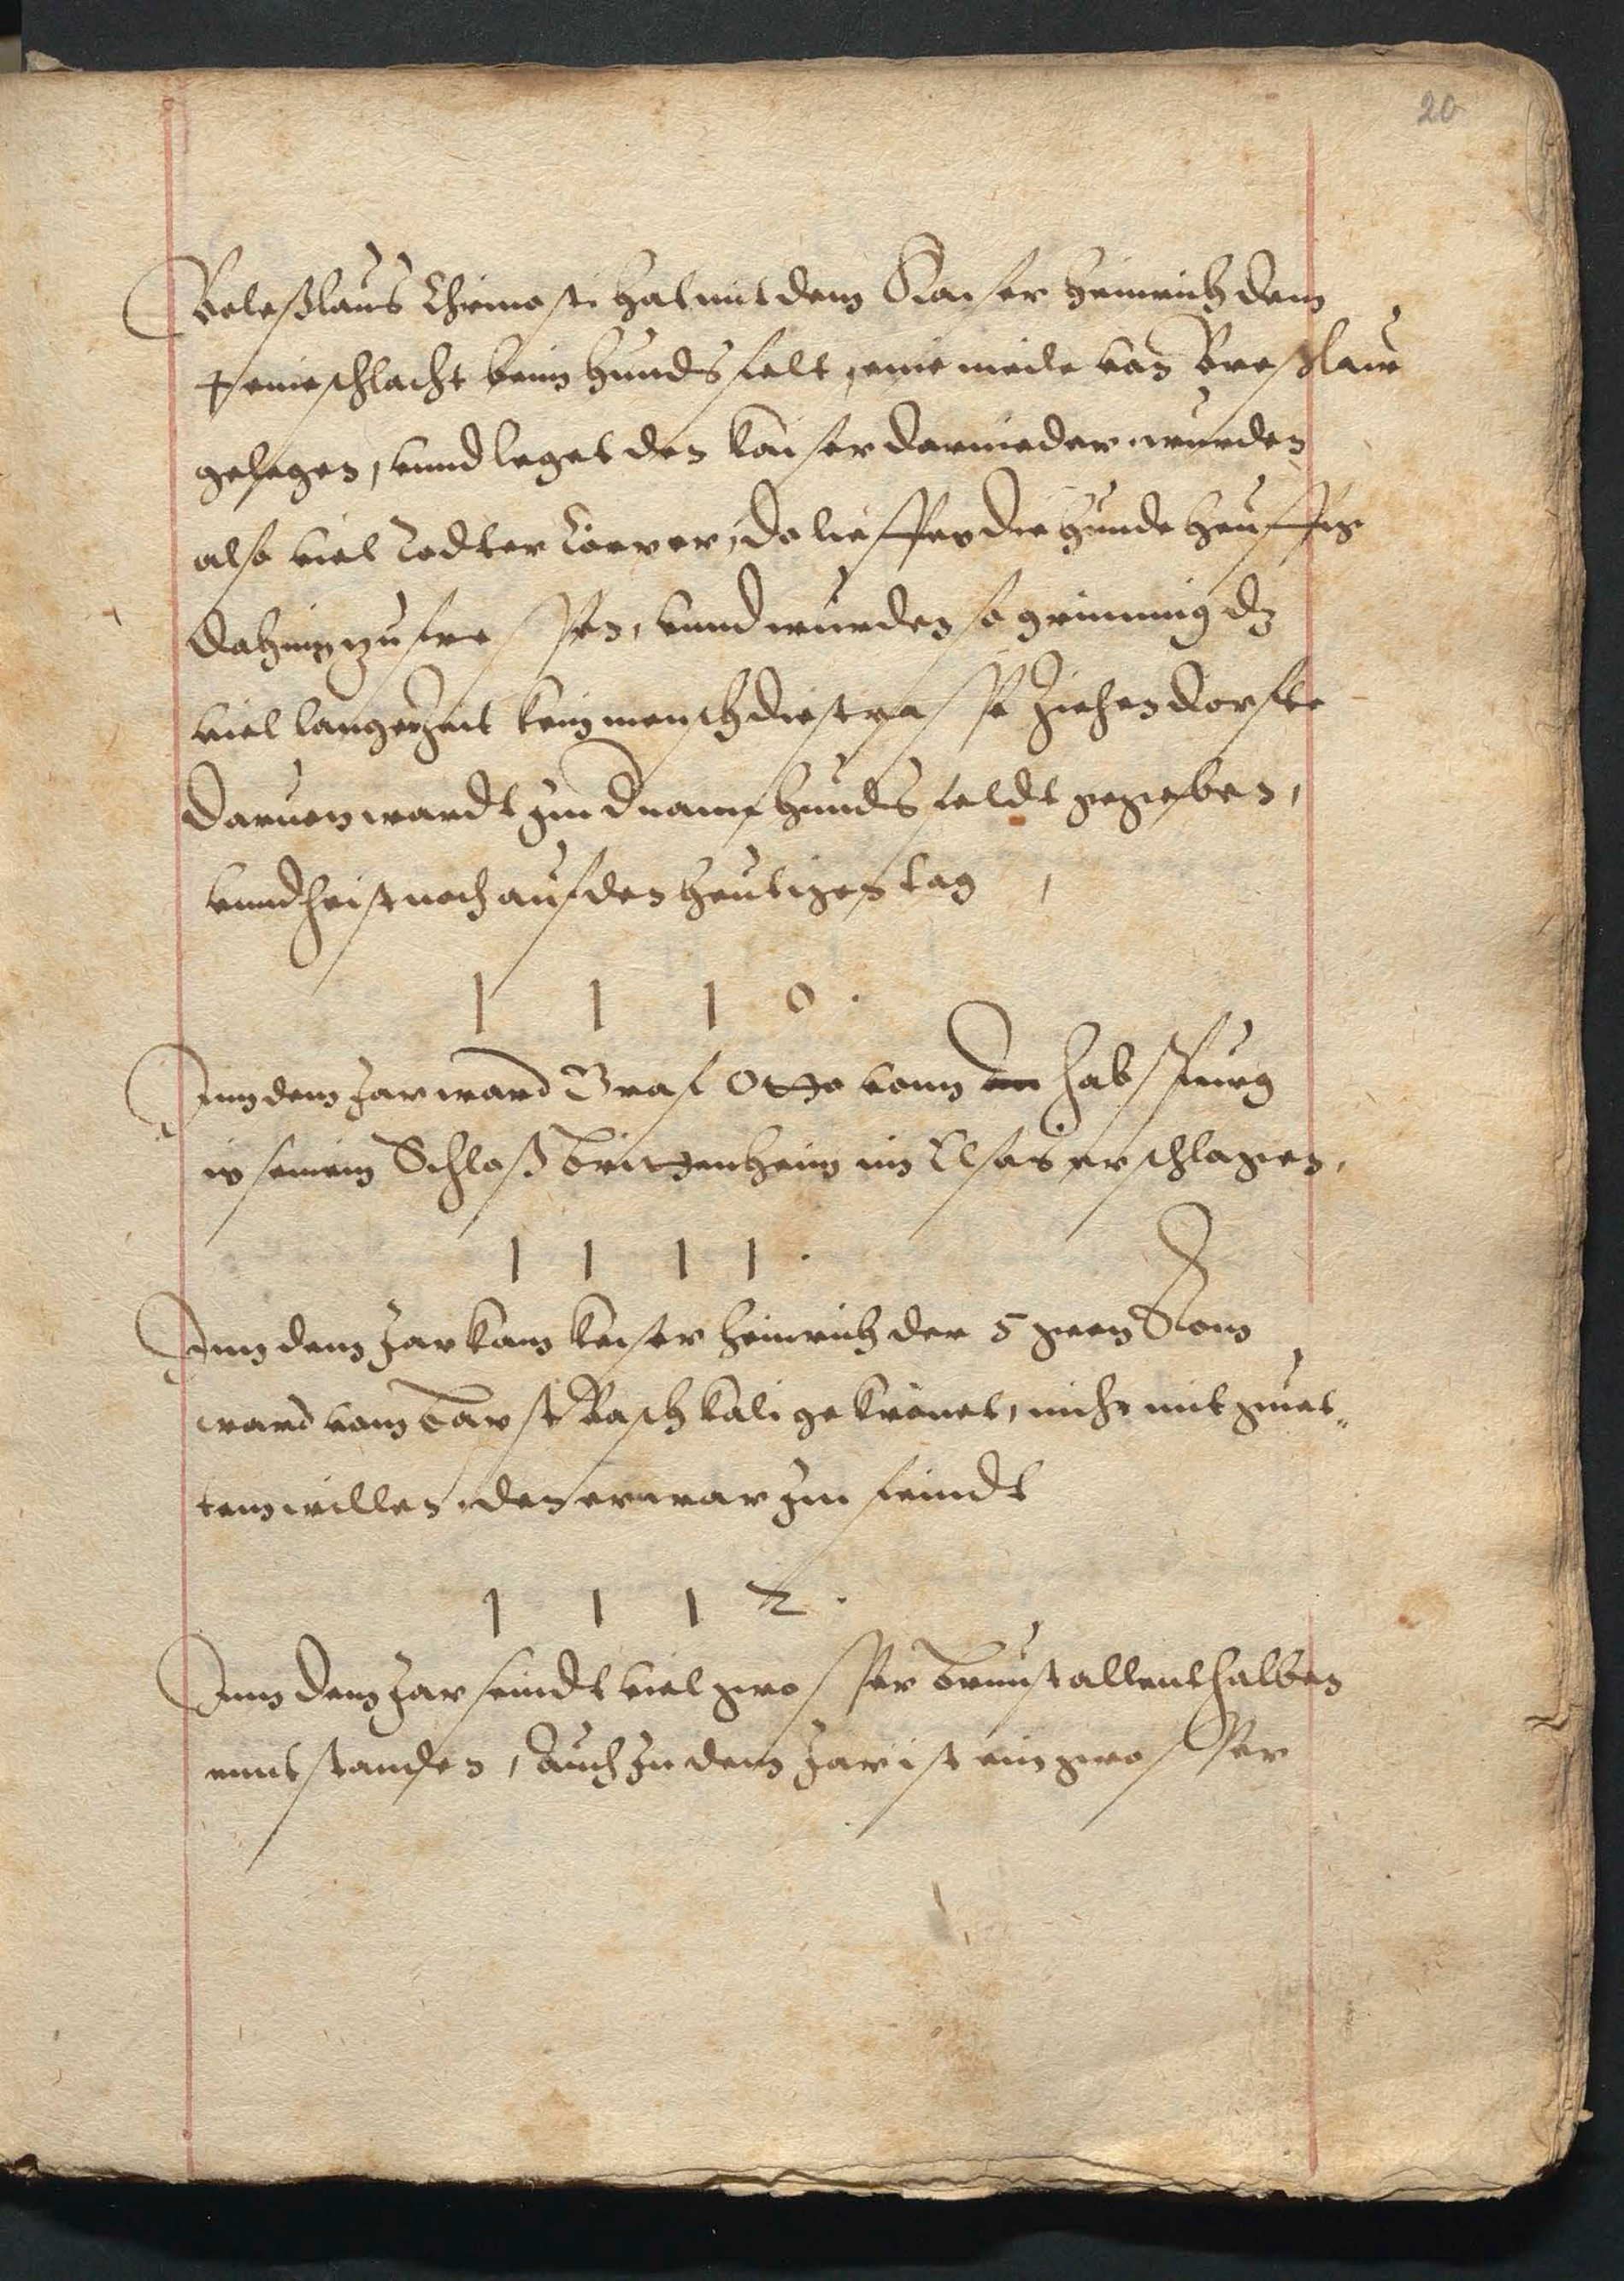 20
Boleßlaus Chrimosti hat mit dem Kaiser Heinrich dem
5 eine schlacht beim Hundsfelt, eine meile von Breßlaw
gelegen, vnnd leget den kaiser darnieder, wurden
also viel Todter Cörper, do lieffen die Hunde heuffig
dahin zu fressen, vnnd wurden so grimmig dz
viel langezeit kein mensch die strasse ziehen dorffte
daruon wardt ym d name Hundsfeldt gegeben,
vnnd heist noch auf den heutigen tag,
1110.
Inn dem Jar ward Graf Otto vonn Habspurg
in seinem Schloß Brittenheim im Elsas erschlagen,
1111.
Inn dem Jar kam keiser Heinrich der 5 gven Rom
ward vom Babst Paschkali gekrönet, nicht mit gut„
tem willen, den er war ym feindt
1112.
Inn dem Jar seindt viel grosser Brunst allenthalben
enntstanden, Auch In dem Jar ist ein grosser